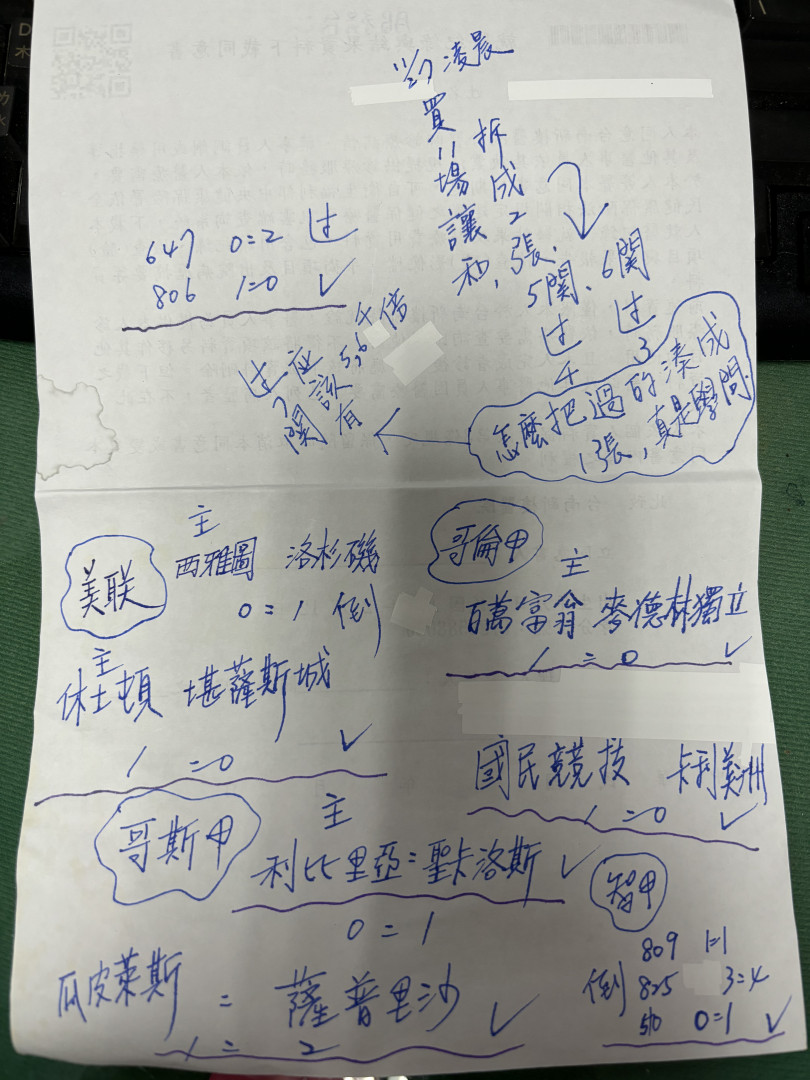 11/27 凌晨
買11場讓和,
拆成2張.
5關、6關
过4 过3
647 0=2 过
806 1=0 ✓
怎麼把過的湊成
1張,真是學問.
过7關
应該有
5,6千倍
美联
主
西雅圖 洛杉磯
0=1 倒
主
休士頓 堪薩斯城
1=0 ✓
哥倫甲
主
百萬富翁 麥德林獨立
1=0 ✓
國民競技 卡利美洲
1=0 ✓
哥斯甲
主
利比里亞=聖卡洛斯 ✓
0=1
瓜皮萊斯 = 薩普里沙
1=2 ✓
智甲
809 1=1
倒 825 3=4
510 0=1 ✓